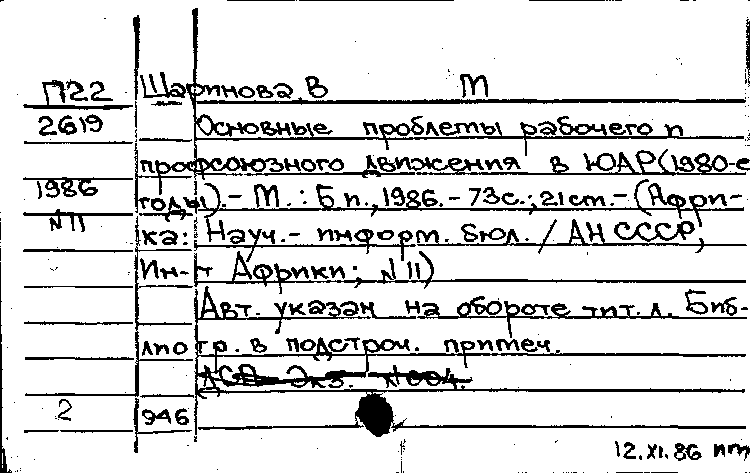 П22 Шаринова, В М
2619 Основные проблемы рабочего и
профсоюзного движения в ЮАР (1980-е
1986 годы). - М. : Б и., 1986. - 73с.; 21 см. - (Афри-
N11 ка: Науч. - информ. бюл. / АН СССР,
Ин-т Африки; N11)
Авт. указан на обороте тит. л. Биб-
лиогр. в подстроч. примеч.
ДСП Экз. N004.
2 946
12.XI.86 пт